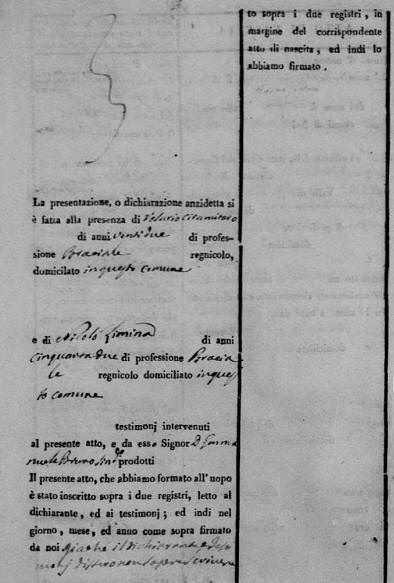 La presentazione, o dichiarazione anzidetta si
è fatta alla presenza di
di anni ventidue di profes-
sione Braciale regnicolo,
domicilato in questo comune
e di Nicolò Liminà di anni
cinquantadue di professione Bracia
le regnicolo domiciliato in ques
to comune
testimonj intervenuti
al presente atto, e da esso Signor D. Emma
nuele Bruno Sind.º prodotti
Il presente atto, che abbiamo formato all'uopo
è stato inscritto sopra i due registri, letto al
dichiarante, ed ai testimonj; ed indi nel
giorno, mese, ed anno come sopra firmato
da noi giacchè il dichiarante e testi
monj dissero non sapere scrivere
to sopra i due registri, in
margine del corrispondente
atto di nascita, ed indi lo
abbiamo firmato.